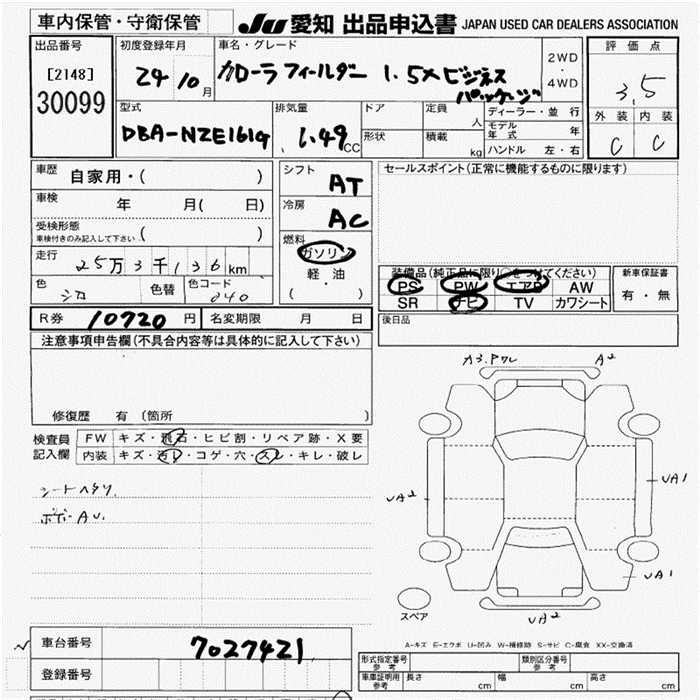 車内保管・守衛保管
JU 愛知 出品申込書 JAPAN USED CAR DEALERS ASSOCIATION
出品番号
[2148]
30099
初度登録年月
24 10月
車名・グレード
カローラフィールダー 1.5X ビジネス
パッケージ
2WD
・
4WD
評価点
3.5
外装 内装
C C
型式
DBA-NZE161G
排気量
1.49 CC
ドア
形状
定員
人
積載
kg
ディーラー・並行
モデル年式 年
ハンドル 左・右
車歴
自家用・( )
車検
年 月( 日)
受検形態
車検付きのみ記入して下さい ( )
走行
25万3千136km
色
シロ
色替
色コード
040
シフト
AT
冷房
AC
燃料
ガソリン
軽・油
( )
セールスポイント(正常に機能するものに限ります)
装備品(純正品に限り○をつけてください)
PS PW エアB AW
SR ナビ TV カワシート
新車保証書
有・無
R券 10720 円
名変期限 月 日
後日品
注意事項申告欄(不具合内容等は具体的に記入して下さい)
修復歴 有 〔箇所 〕
検査員
記入欄
FW キズ・飛石・ヒビ割・リペア跡・X要
内装 キズ・汚レ・コゲ・穴・スレ・キレ・破レ
シートヘタリ.
ボデーAU.
A3.Pワレ
A2
UA2
UA1
UA1
UA2
スペア
A-キズ E-エクボ U-凹み W-補修跡 S-サビ C-腐食 XX-交換済
車台番号
7027421
登録番号
形式指定番号
参考
類別区分番号
参考
車庫証明用
参考
長さ cm
幅 cm
高さ cm